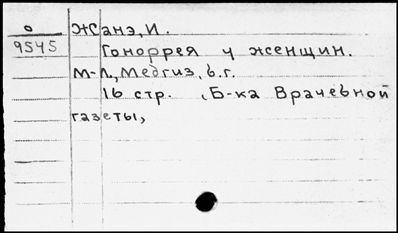 о
9545
Жанэ, И.
Гоноррея у женщин.
М-Л., Медгиз, б.г.
16 стр. (Б-ка Врачебной
газеты,